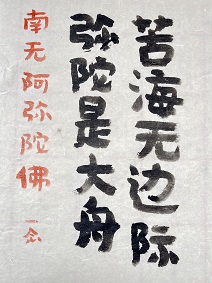 苦海无边际
弥陀是大舟
南无阿弥陀佛
一念